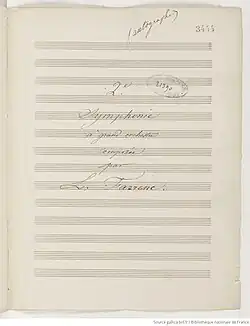 (autographe)
3444
2e
Symphonie
à grand orchestre
composée
par
Le Farrenc.
Source gallica.bnf.fr / Bibliothèque nationale de France